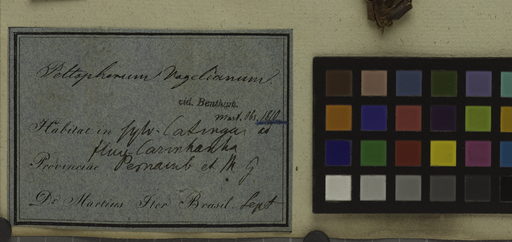 Peltophorum Vogelianum
vid. Benthem.
mart. Obs. 1810.
Habitat in sylv. Catingas ad
fluv. Carinhanha
Provinciae Pernamb et M. G
De Martius Iter Brasil. Sept